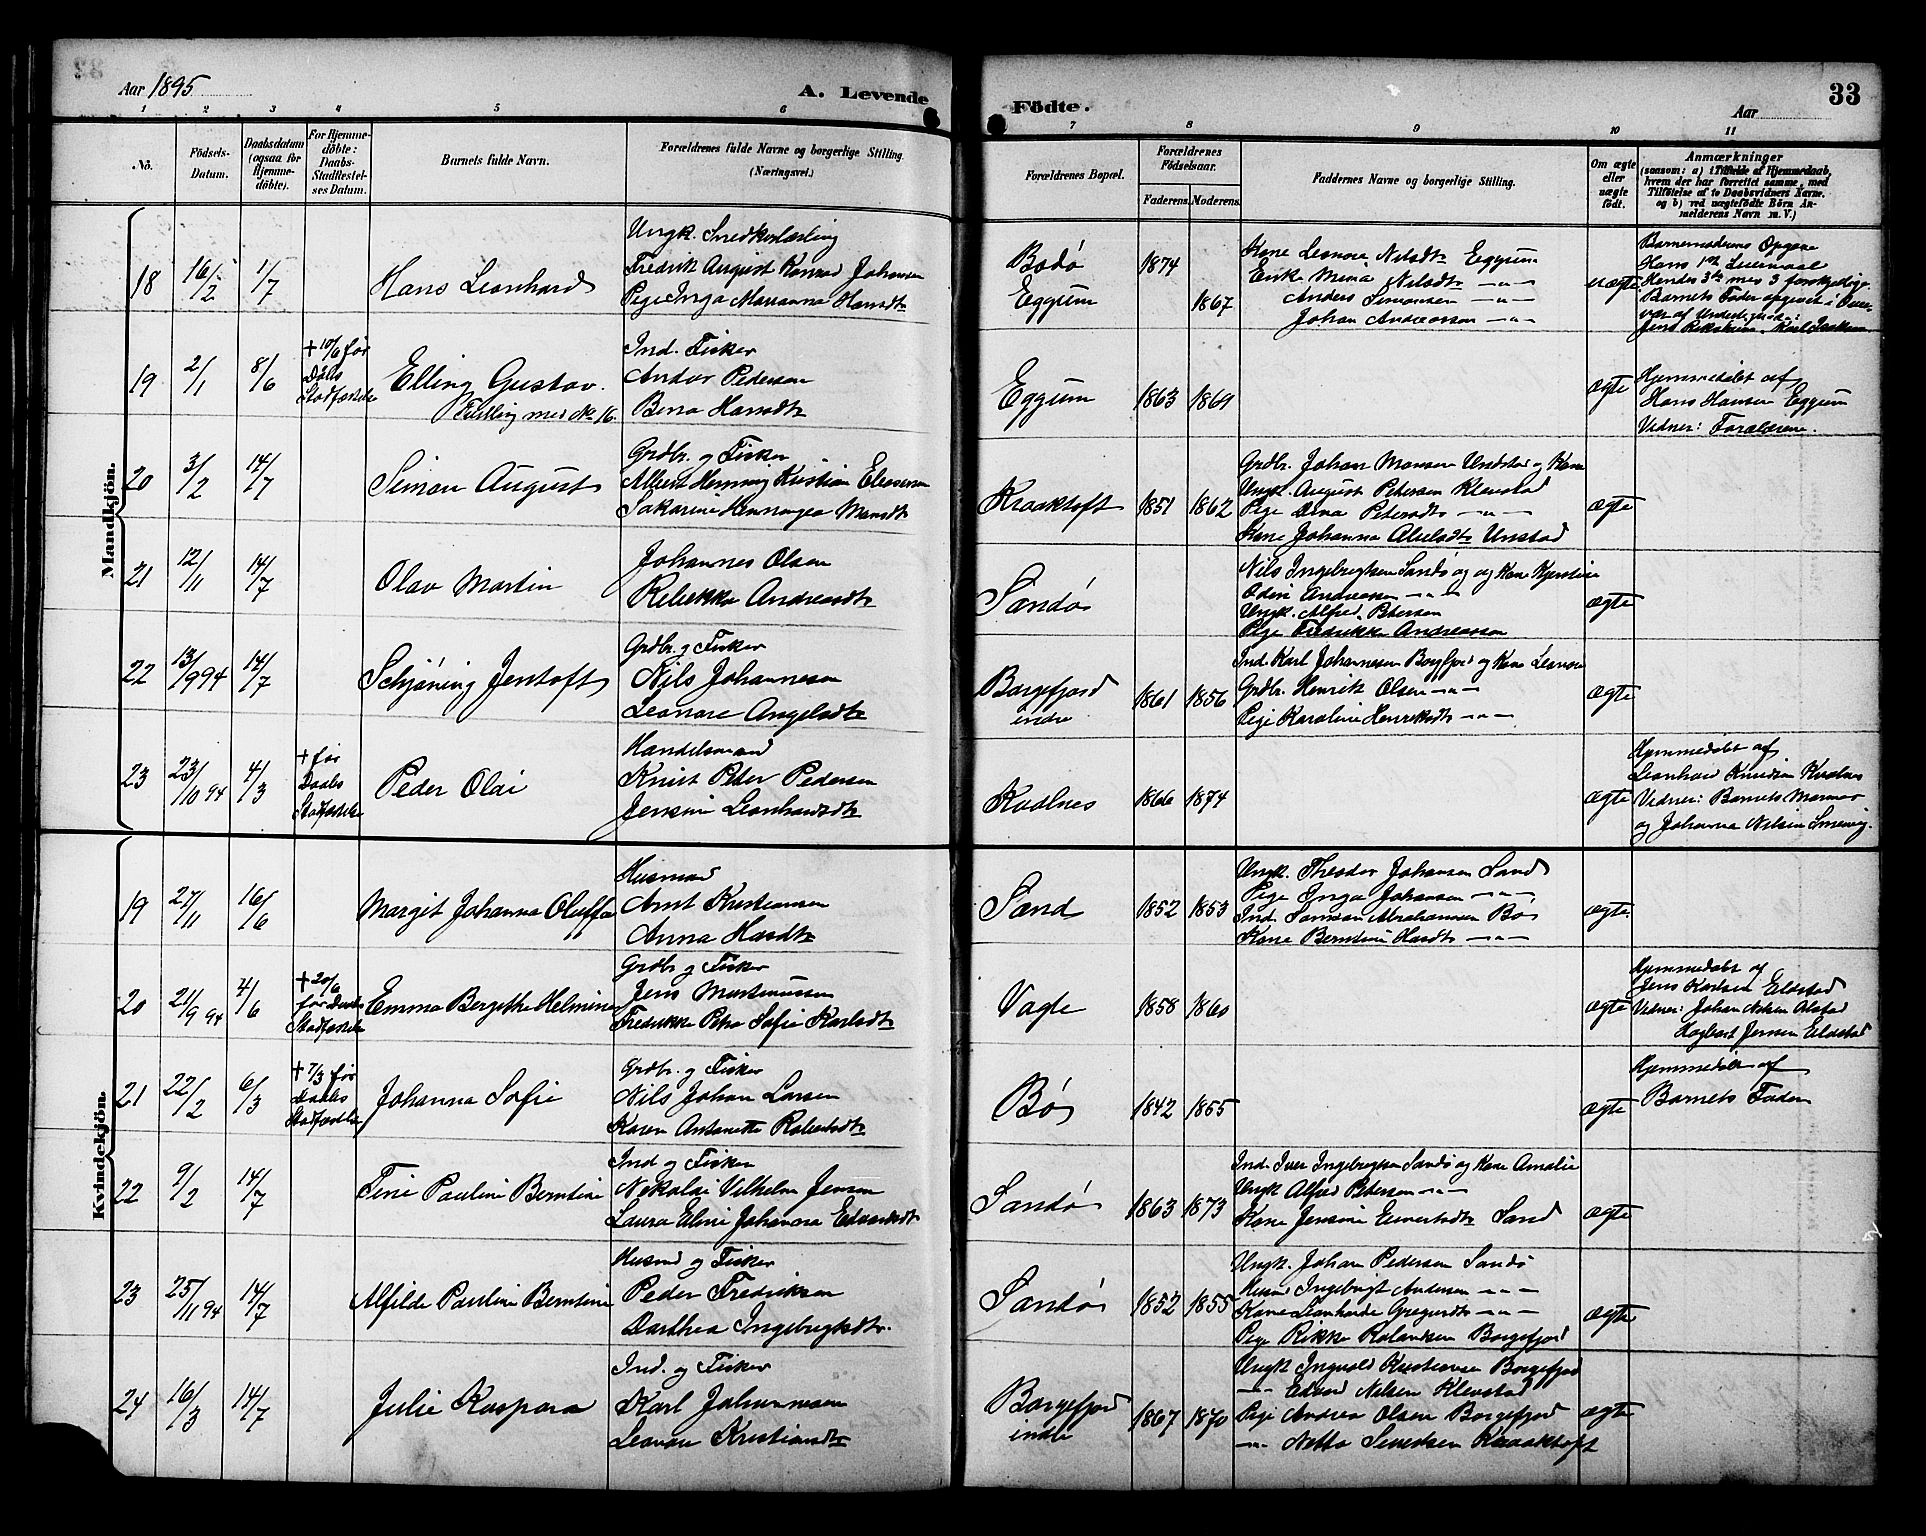 Aar 1895
A. Levende
Fødte.
Aar
33
1 2 3 4 5 6 7 8 9 10 11
No.
Födsels-
Datum.
Daabsdatum
(ogsaa for
Hjemme-
döbte).
For Hjemme-
döbte:
Daabs-
Stadfæstel-
ses Datum.
Barnets fulde Navn.
Forældrenes fulde Navne og borgerlige Stilling.
(Næringsvei.)
Forældrenes Bopæl.
Forældrenes
Födselsaar.
Faderens. Moderens.
Faddernes Navne og borgerlige Stilling.
Om ægte
eller
uægte
födt.
Anmærkninger
(saasom: a) i Tilfælde af Hjemmedaab,
hvem der har forrettet samme, med
Tilföielse af to Daabsvidners Navne.
og b) ved uægtefödte Börn An-
melderens Navn m. V.)
Mandkjön.
18 16/2 1/7 Hans Leonhard
Ungk. Snedkerlærling
Fredrik August Konrad Johansen
Pige Inga Marianna Hansdtr
Bodø
Eggum
1874
1867
Kone Leonore Nilsdtr Eggum
Enke Mina Nilsdtr -"-
Anders Simonsen -"-
Johan Andreassen -"-
uægte
Barnemoderens Opgave
Hans 1ste Leiermaal
Hendes 3die med 3 forskjellige
Barnets Fader opgivet i Over-
vær af Undertegnede:
19 2/1 8/6 + 10/6 før
Daabs
Stadfæstelse
Elling Gustav.
Tvilling med No 16.
Ind. Fisker
Andor Pedersen
Berra Hansdtr
Eggum 1863 1869 ægte
Hjemmedøbt af
Hans Hansen Eggum
Vidner: Forældrene.
20 3/2 14/7 Simon August
Grdbr. og Fisker
Albert Henning Kristian Eliassen
Sakarine Henningea Monsdtr
Kraaktoft 1851 1862
Grdbr. Johan Monsen Unstad og Kone
Ungk. August Petersen Klevstad
Pige Dina Petersdtr -"-
Kone Johanna Abelsdtr Unstad
ægte
21 12/11 14/7 Olav Martin
Johannes Olsen
Rebekka Andreasdtr
Sandø
Nils Ingebrigtsen Sandø og Kone Kjerstine
Odin Andreassen -"-
Ungk. Alfred Petersen
Pige Fredrikke Andreassen
ægte
22 13/9 94 14/7 Schjøning Jentoft
Grdbr. og Fisker
Nils Johannesen
Leonore Angelsdtr
Borgefjord
indre
1861 1856
Ind. Karl Johannesen Borgfjord og Kone Leonore
Grdbr. Henrik Olsen -"-
Pige Karoline Henriksdtr -"-
ægte
23 23/10 94 4/3 + før
Daabs
Stadfæstelse
Peder Olai
Handelsmand
Knut Peter Pedersen
Jensine Leonhardsdtr
Kvalnes 1866 1874 ægte
Hjemmedøbt af
Leonhard Knudsen Kvalnes
Vidner: Barnets Mormor
og Johanna Nilsen
Kvindekjön.
19 27/11 16/6 Margit Johanna Oluffa
Husmand
Arnt Kristiansen
Anna Hansdtr
Sand 1852 1853
Ungk. Theodor Johansen Sand
Pige Inga Johansen -"-
Ind. Samson Abrahamsen Bø
Kone Berntine Hansdtr -"-
ægte.
20 21/9 94 4/6 + 20/6
før Daabs
Stadfæstelse
Emma Bergitte Helmine
Grdbr og Fisker
Jens Martinussen
Fredrikke Petra Sofie Karlsdtr
Vagle 1858 1860 ægte
Hjemmedøbt af
Jens Karlsen Eldstad
Vidner: Johan Nilsen Alstad
Hagbart Jensen Eldstad
21 22/2 6/3 + 7/3 før
Daabs
Stadfæstelse
Johanna Sofie
Grdbr. og Fisker
Nils Johan Larsen
Karen Antonette Robertsdtr
Bø 1842 1855 ægte
Hjemmedøbt af
Barnets Fader
22 9/2 14/7 Tine Pauline Berntine
Ind og Fisker
Nikolai Vilhelm Jensen
Laura Eline Johanna Edvardsdtr
Sandø 1863 1873
Ind. Iver Ingebrigtsen Sandø og Kone Amalie
Ungk Alfred Petersen -"-
Kone Jensine Eivertsdtr Sand
ægte
23 25/11 94 14/7 Alfilde Pauline Berntine
Husmd og Fisker
Peder Fredriksen
Dorthea Ingebrigtsdtr.
Sandø 1852 1855
Ungk. Johan Pedersen Sandø
Husmd Ingebrigt Andersen -"-
Kone Leonharde Gregersdtr -"-
Pige Rikke Rolandsen Borgefjord
ægte
24 16/3 14/7 Julie Kaspara
Ind. og Fisker
Karl Johannesen
Leonore Kristiansdtr
Borgefjord
indre
1867 1870
Ungk Ingvald Kristiansen Borgefjord
-"- Edvard Nilsen Klevstad
Pige Andrea Olsen Borgefjord
-"- Netta Sivertsen Kraaktoft
ægte